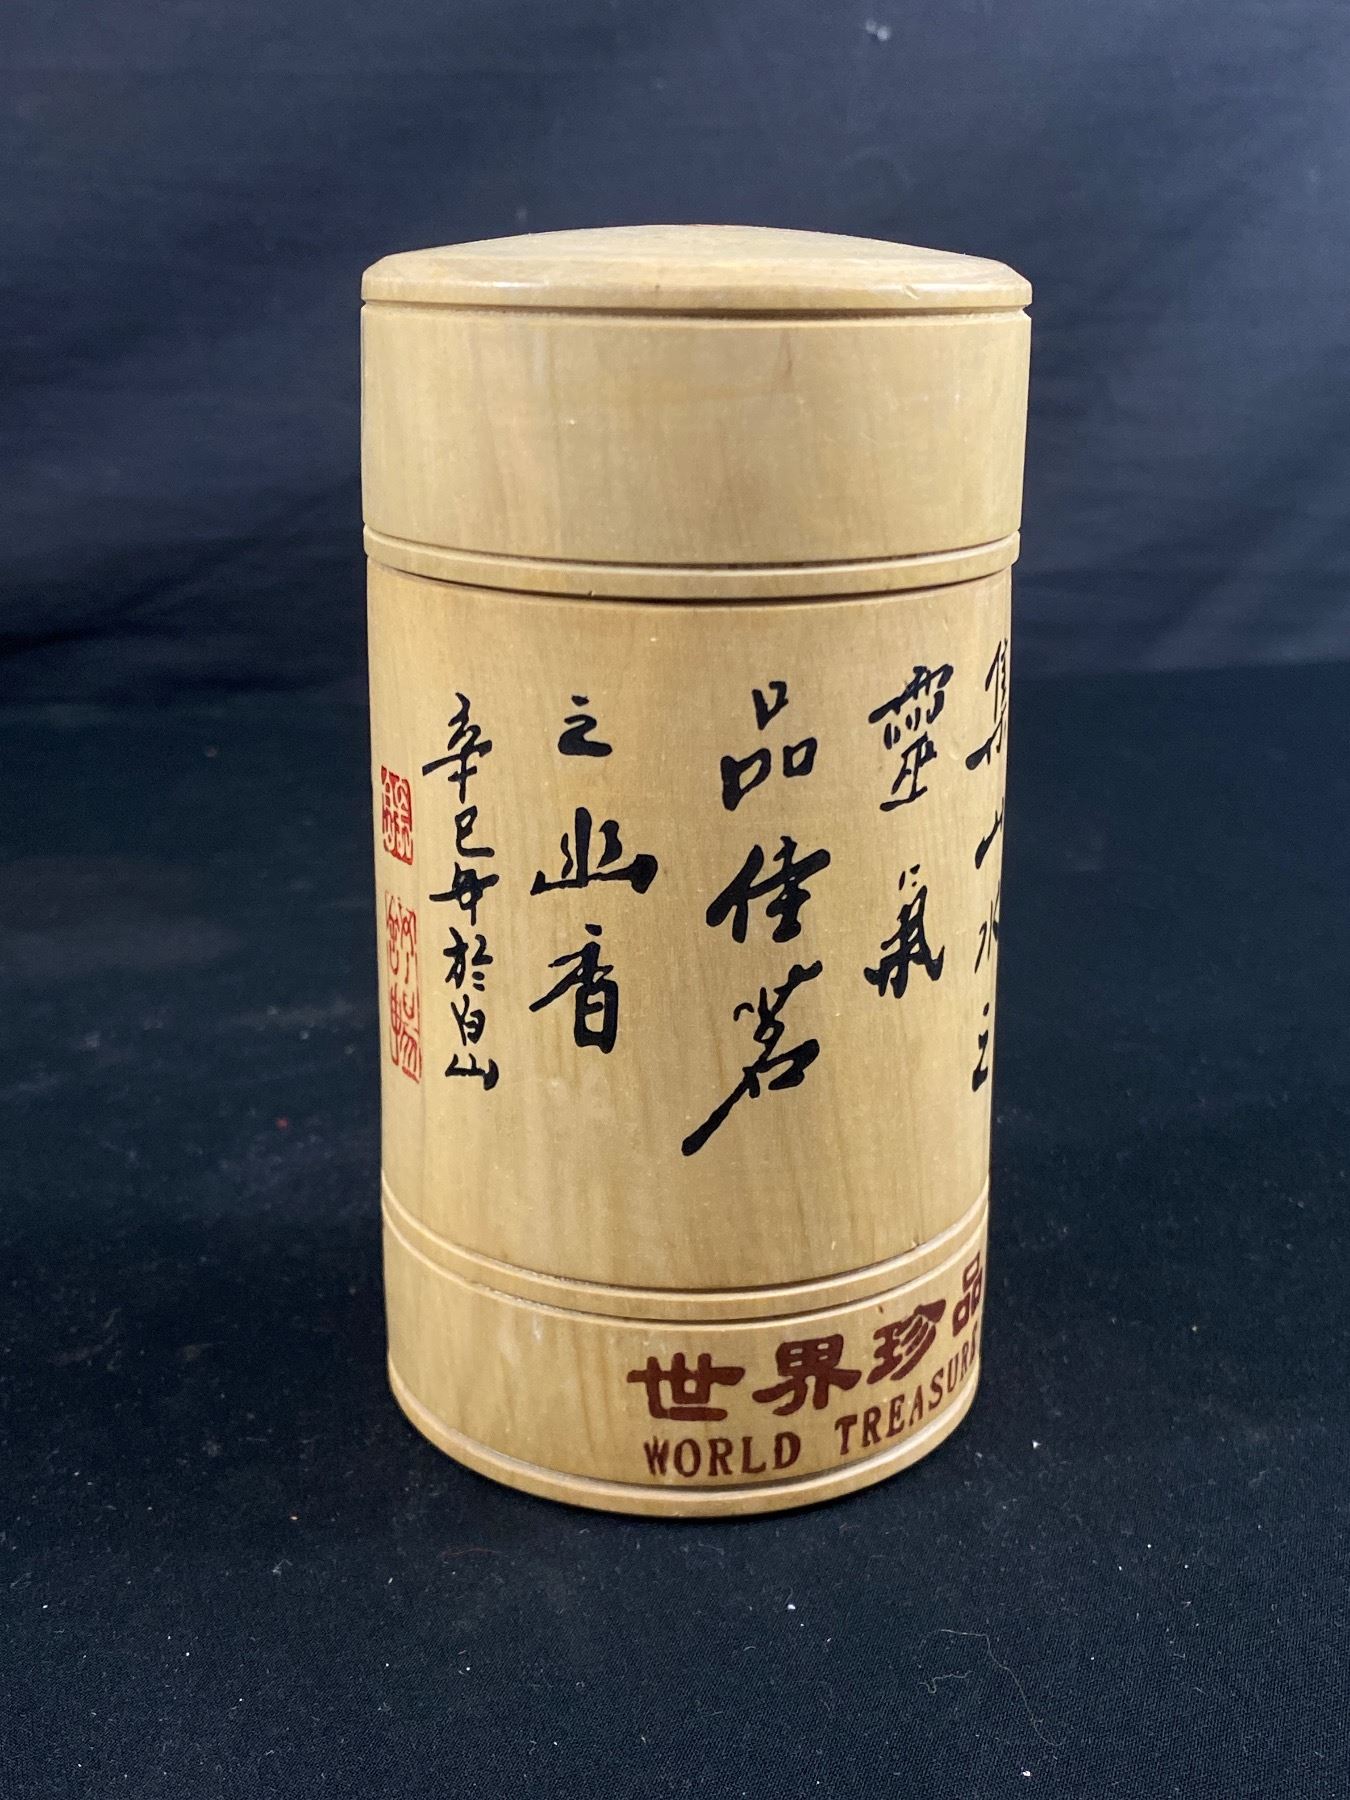 集山水之
靈氣
品佳茗
之幽香
辛巳冊於白山
世界珍品
WORLD TREASURE